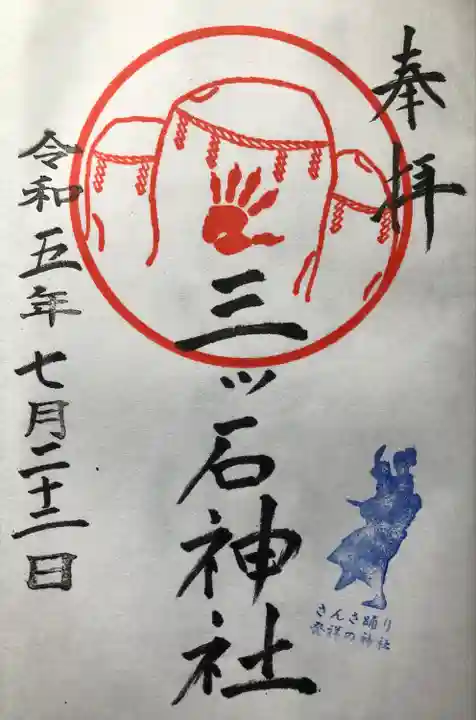 奉拝
三ッ石神社
さんさ踊り
発祥の神社
令和五年七月二十二日